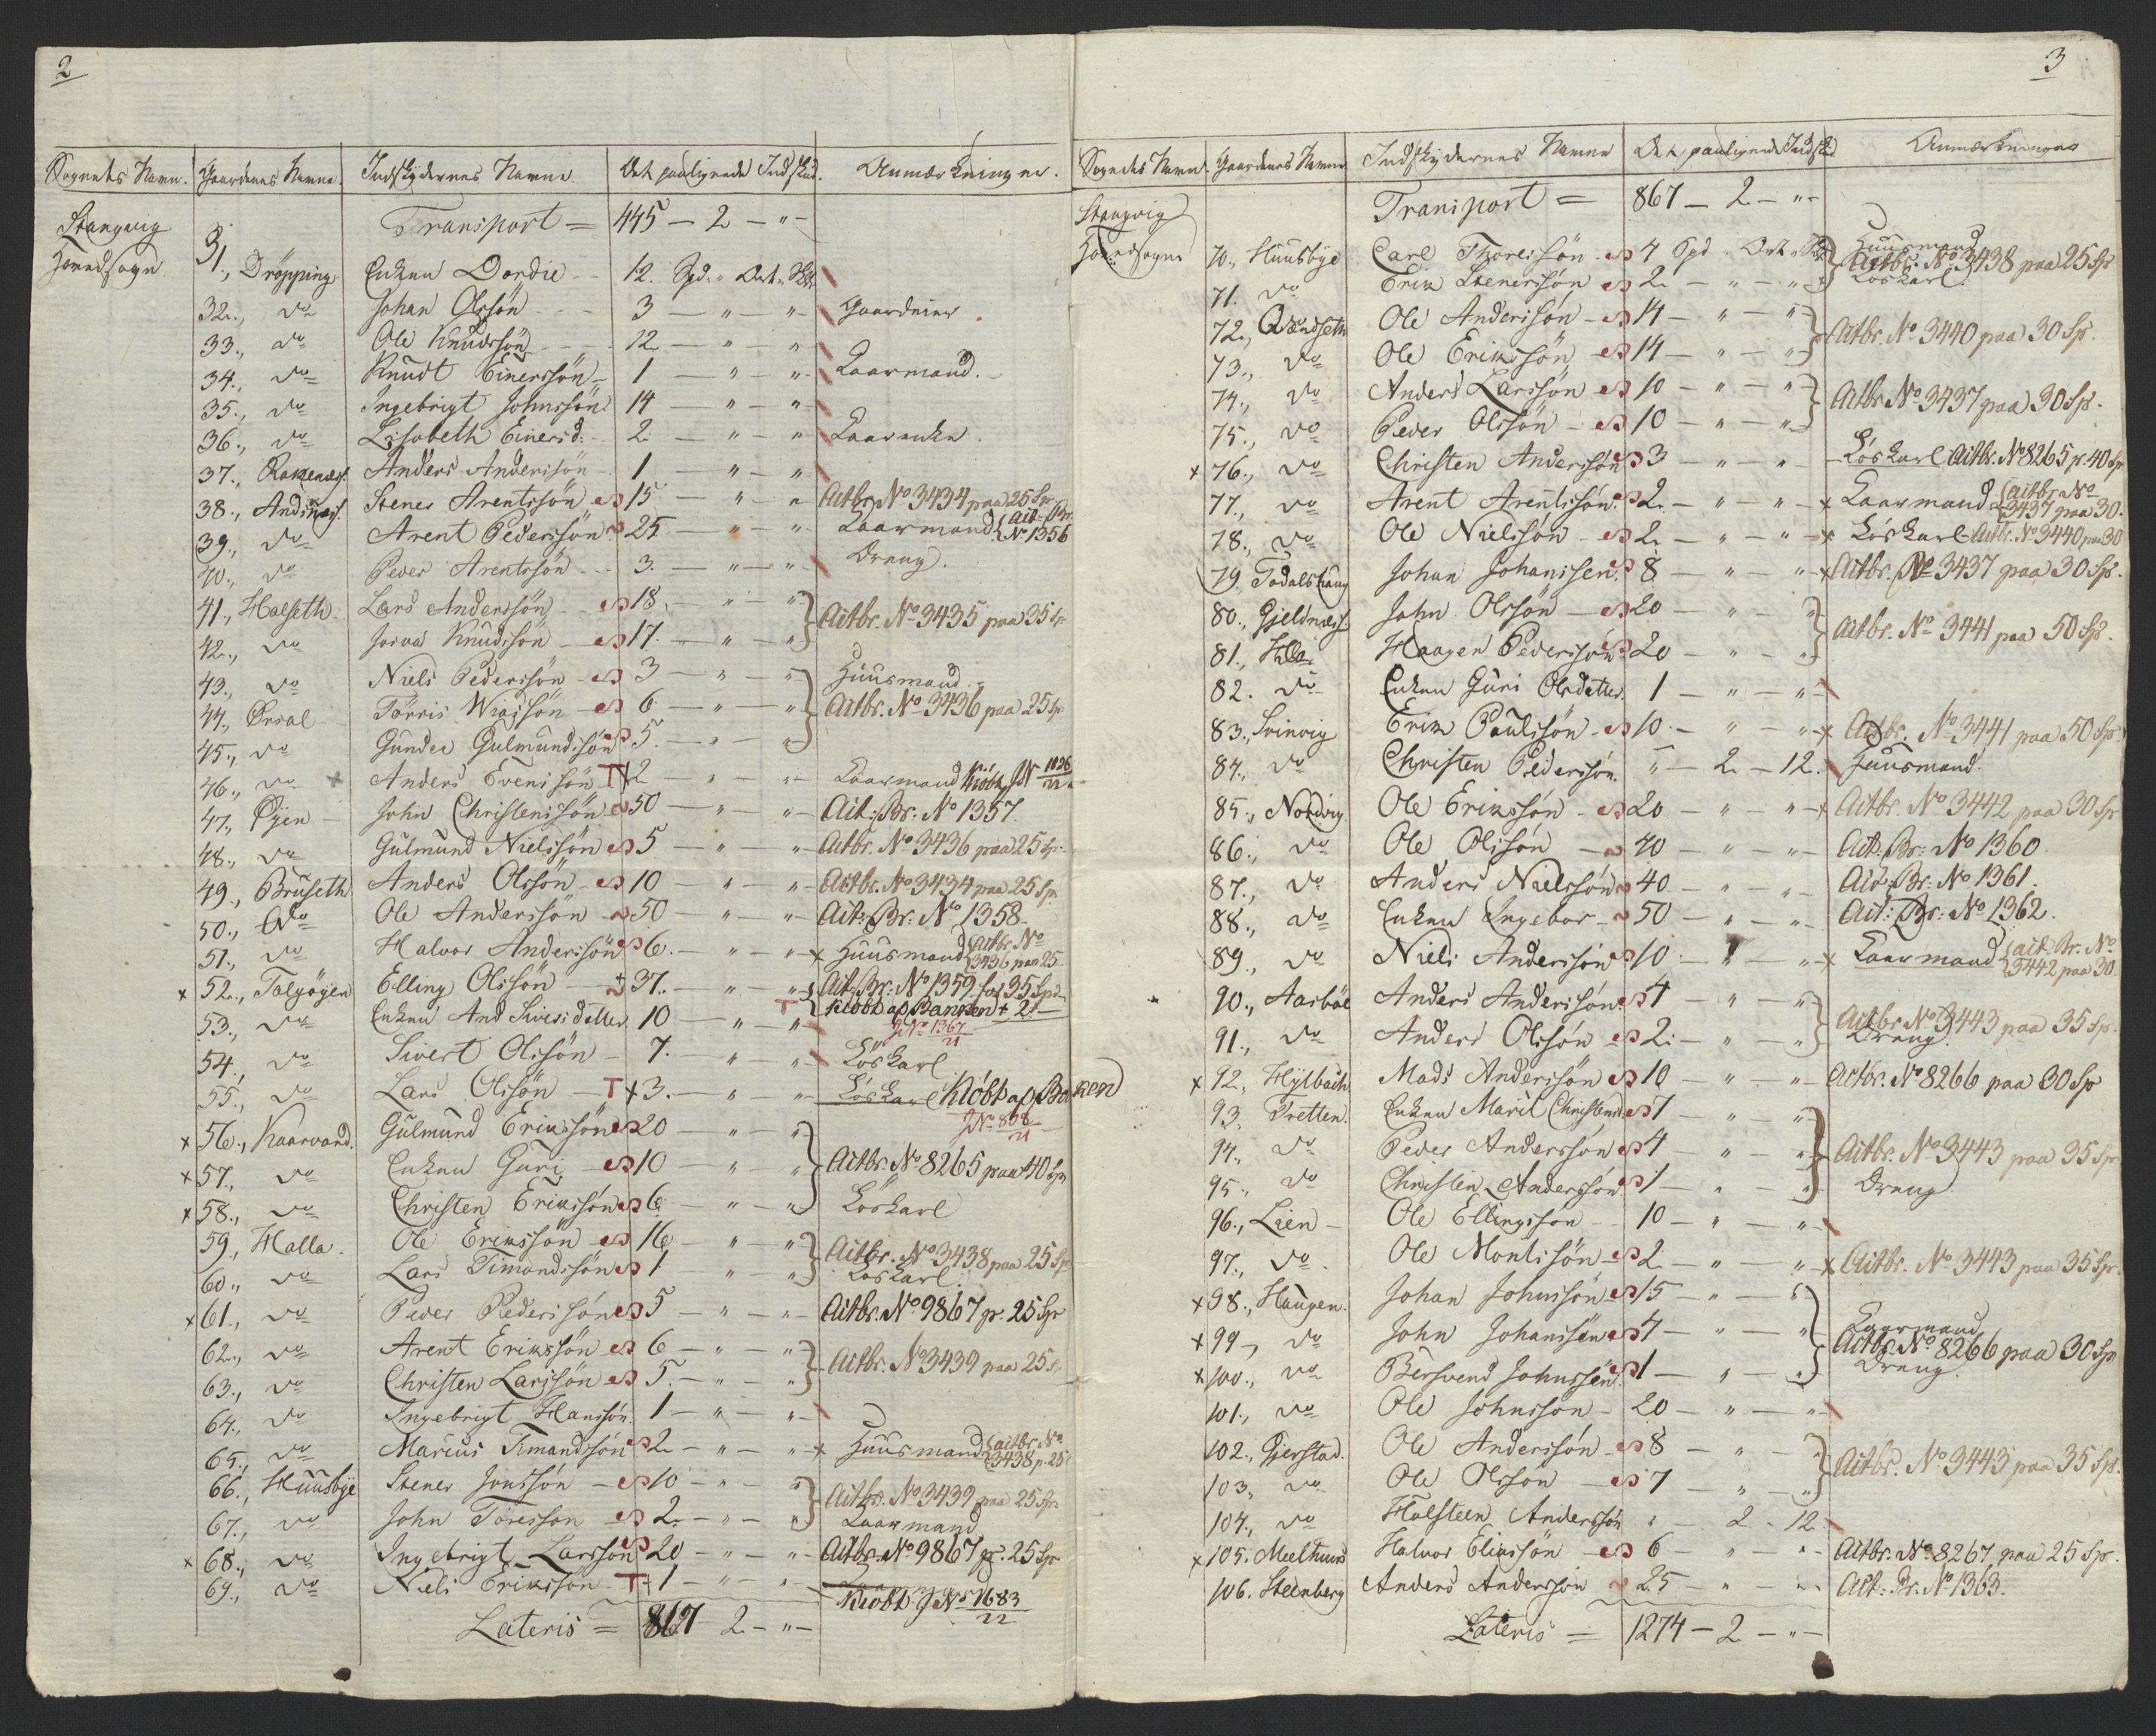 2
Sognets Navn. Gaardenes Navne. Indskydernes Navne Det paalignede Indskud. Anmærkninger.
Stangvig Transport = 445 - 2 - " -
Hovedsogn. 31., Dröpping Enken Dordie - 12 Spd. " Ort " Sk
32., do Johan Olssön - - - 3 - " - " - Gaardeier
33., do Ole Knudssön - - - 12 - " - "
34., do Knudt Einerssön - 1 - " - " - Kaarmand. -
35., do Ingebrigt Johnssön 14 - " - " -
36., do Lisabeth Einersd: - 2 - " - " Kaarenke.
37., Rakenæs. Anders Anderssön - 1 - " - "
38., Andinæs. Stener Arentssön 15 - " - " Actbr. No 3434 paa 25 Sp
39., do Arent Pederssön 25 - " - " - Kaarmand { Act. Br. No 1356
40., do Peder Arentssön - - 3 - " - " - Dreng.
41., Halseth Lars Anderssön - 18. - " - "
42., do Joraa Knudssön - 17. - " - " } Actbr. No 3435 paa 35 Sp
43., do Niels Pederssön - 3 - " - " Huusmand. -
44., Ørsal - Törris Wiassön - 6 - " - " } Actbr. No 3436 paa 25 Sp
45., do Gunder Gulmundssön 5. - " - "
46., do x Anders Evenssön T + 2 - " - " - Kaarmand kiöbt J No 1036/22
47., Øyen - John Christenssön 50 - " - " - Act: Br: No 1357.
48., do Gulmund Nielssön 5 - " - " - Actbr. No 3436 paa 25 Sp.
49., Bruseth Anders Olssön - 10 - " - " - Actbr. No 3434 paa 25 Sp
50., do Ole Anderssön - 50 - " - " - Act: Br: No 1358.
51., do Halvor Anderssön 6. - " - " x Huusmand { Actbr. No 3436 paa 25
x 52., Talgöyen Elling Olssön - + 37. - " - " - { Act. Br: No 1359 for 35 Spd
53., do Enken And Sivers datter 10 - " - " T kiöbt af Banken + 2 -
J No 1367/21
54., do Sivert Olssön - 7. - " " Löskarl
55., do Lars Olssön - T + 3. - " " - Löskarl Kiöbt af Banken
J No 808/21
x 56., Kaarvand. Gulmund Erikssön 20 - " - "
x 57., do Enken Guri - 10 - " " } Actbr. No 8265 paa 40 Sp
x 58., do Christen Erikssön 6 - " - " Löskarl
59., Halla. Ole Erikssön - 16 - " - " } Actbr. No 3438 paa 25 Sp
60., do Lars Timandssön 1 - " - " Löskarl
x 61., do Peder Pederssön 5 - " - " - Actbr. No 9867 pr. 25 Sp
62., do Arent Erikssön 6 - " - " } Actbr. No 3439 paa 25 Sp
63., do Christen Larssön 5. - " - "
64., do Ingebrigt Hanssön. 1 - " - " -
65., do Marcus Timandssön 2 - " - " x Huusmand { actbr. No 3438 p. 25
66., Huusbye Stener Jonssön - 10 - " - " } Actbr. No 3439 paa 25 Sp.
67., do John Toressön 2. - " - " Kaarmand
x 68., do Ingebrigt Larssön 20 - " - " - Actbr. No 9867 pr. 25 Sp
69., do Niels Erikssön - T + 1 - " - " - Kiöbt J No 1683/22
Lateris = 867 2 - " -
3
Sognets Navn. Gaardenes Navne Indskydernes Navne Det paalignede Indskud Anmærkninger
Stangvig Transport = 867 - 2 - " -
Hovedsogn 70., Huusbye Carl Thoressön 4 Spd " Ort " Huusmand
71. do Erik Stenerssön 2. - " - " } Actbr. No 3438 paa 25 Sp Löskarl.
72., Qvendseth Ole Anderssön - 14 - " - " } Actbr. No 3440 paa 30 Sp.
73., do Ole Erikssön 14 - " - "
74., do Anders Larssön 10 - " - " } Actbr No 3437 paa 30 Sp.
75., do Peder Olssön - 10 - " - "
x 76., do Christen Anderssön 3 - " - " - Löskarl Actbr. No 8265 p. 40 Sp
77., do Arent Arentssön. 2. - " - " x Kaarmand { actbr. No 3437 paa 30.
78., do Ole Nielssön - 2. - " - " x Löskarl Actbr. No 3440 paa 30
79. Todalshaug Johan Johanssen. 8 - " - " x Actbr. No 3437 paa 30 Sp.
80., Gjeldnæs. John Olssön - 20 - " - " } Actbr. No 3441 paa 50 Sp.
81., Hals Haagen Pederssön 20 - " - "
82. do Enken Guri Olsdatter. 1 - " - "
83., Svinvig Erik Paulssön - 10. - " - " x Actbr. No 3441 paa 50 Sp.
84., do Christen Pederssön. " - 2. - 12. Huusmand.
85., Nordvig. Ole Erikssön - 20 - " - " x Actbr. No 3442 paa 30 Sp
86., do Ole Olssön - 40 - " - " - Act. Br: No 1360
87., do Anders Nielssön 40. - " - " - Act: Br: No 1361.
88., do Enken Ingebor 50 - " - " - Act: Br: No 1362.
89., do Niels Anderssön 10. - " - " x Kaarmand { act. Br. No 3442 paa 30
90., Aasböe Anders Anderssön. 4 - " - " } Actbr No 3443 paa 35 Sp.
91., do Anders Olssön 2. - " - " Dreng
x 92., Hylbach. Mads Anderssön 10 - " " - Actbr. No 8266 paa 30 Sp
93. Tretten. Enken Marit Christens 7 - " - "
94., do Peder Anderssön 4 - " - " } Actbr. No 3443 paa 35 Sp.
95., do Christen Anderssön 1 - " - " Dreng
96., Lien - Ole Ellingssön - - 10 - " - "
97., do Ole Montssön 2 - " - " x Actbr. No 3443 paa 35 Sp.
x 98., Haugen. Johan Johnssön 15 - " - "
x 99 -, do John Johanssön 4 - " - " Kaarmand
x 100., do Bersvend Johnssön 1 - " - " } Actbr. No 8266 paa 30 Sp Dreng.
101., do Ole Johnssön - 20 - " - " -
102., Gjerstad. Ole Anderssön - 8 - " - " } Actbr. No 3443 paa 35 Sp.
103., do Ole Olssön - 7 - " - "
104., do Halsteen Anderssön " - 2 - 12
x 105. Meelhuus Halvor Eliassön 6 - " - " Actbr. No 8267 paa 25 Sp.
106. Steenberg Anders Anderssön 25 - " - " Act: Br. No 1363.
Lateris = 1274 - 2 - " -